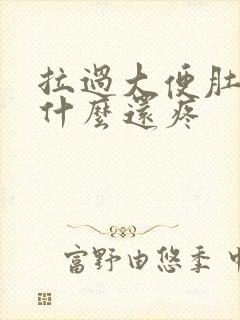 拉過大便肚
什麼還疼
富野由悠季